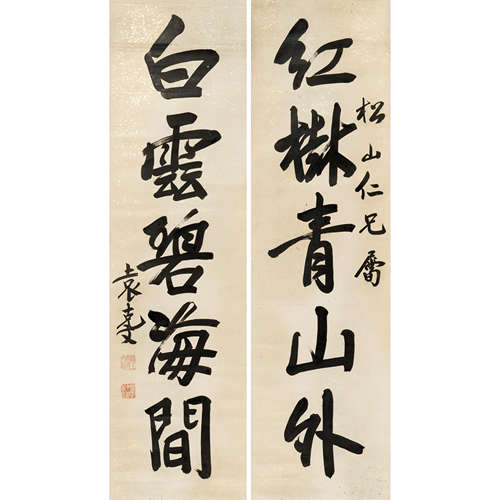 紅樹青山外
松山仁兄屬
白雲碧海間
袁克文